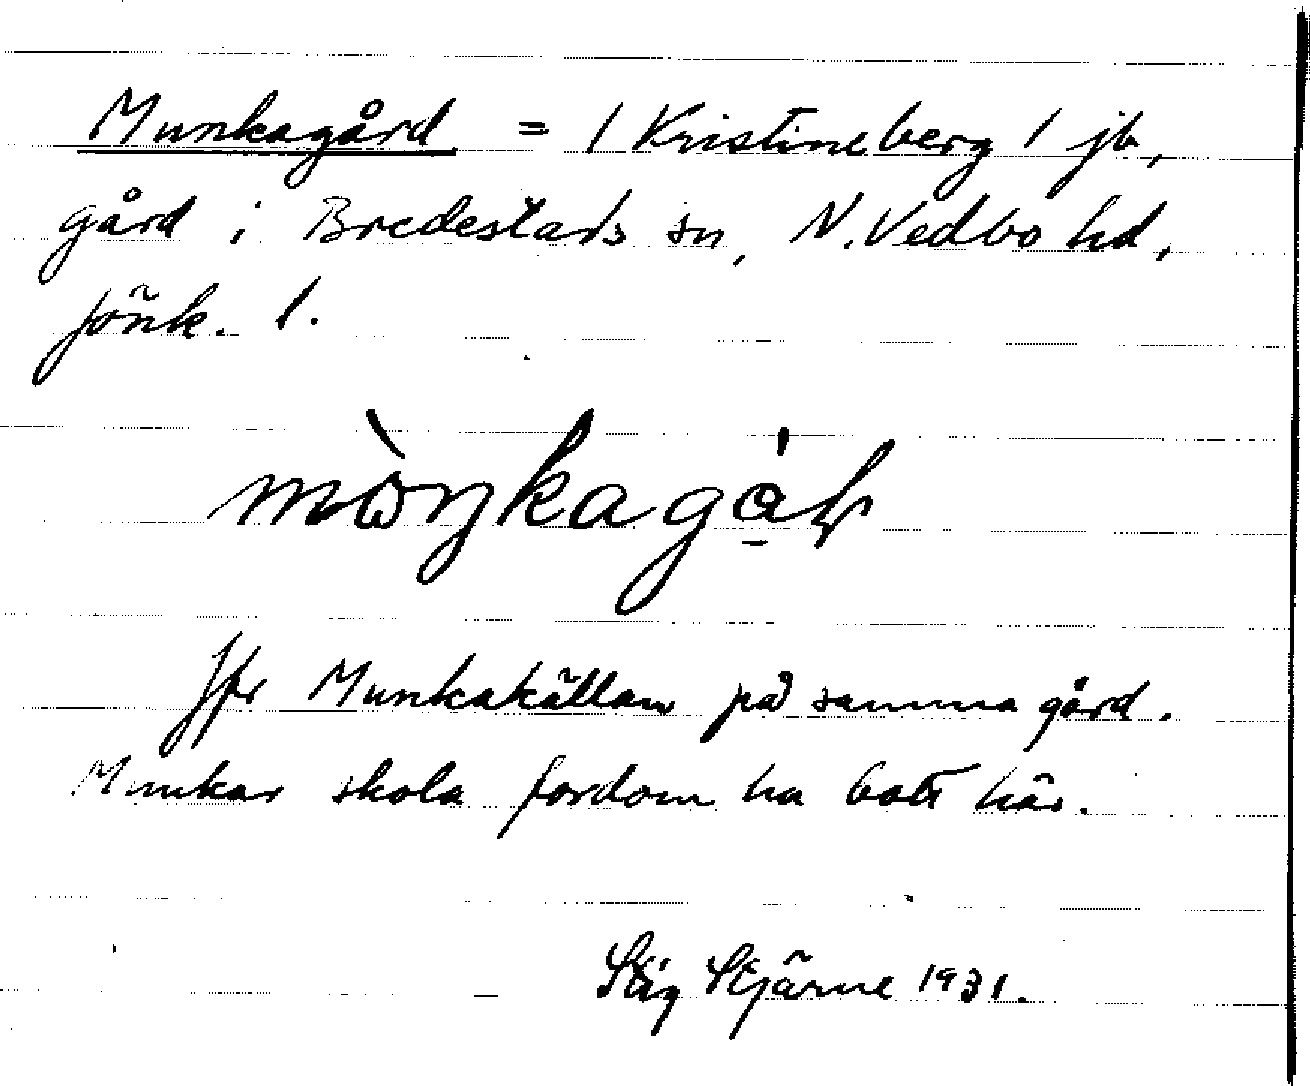 Munkagård = / Kristineberg / jb,
gård i Bredestads sn, N. Vedbo hd,
Jönk. l.
mὼŋkagá̱ɽ
Jfr Munkakällan på samma gård.
Munkar skola fordom ha bott här.
Stig Stjärne 1931.